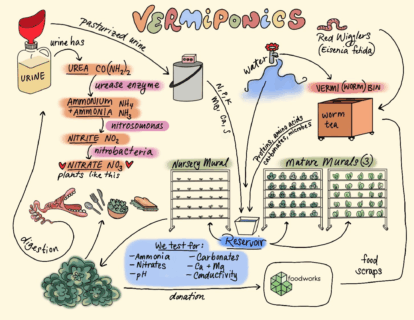 VERMIPONICS
pasturized urine
urine has
URINE
UREA CO(NH2)2
urease enzyme
AMMONIUM NH4
+ AMMONIA NH3
nitrosomonas
NITRITE NO2
nitrobacteria
NITRATE NO3
plants like this
N, P, K
Mg, Ca, S
water
Red Wigglers
(Eisenia fetida)
VERMI (WORM) BIN
worm
tea
Proteins, amino acids
carbonates, microbes
Nursery Mural
Mature Murals (3)
Reservoir
digestion
We test for:
- Ammonia
- Nitrates
- pH
- Carbonates
- Ca + Mg
- Conductivity
donation
foodworks
food
scraps